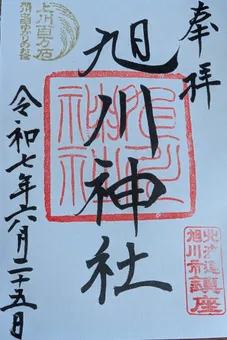 奉拝
旭川神社
令和七年六月二十五日
上川百万石
旭川神社
北海道
旭川市
鎮座